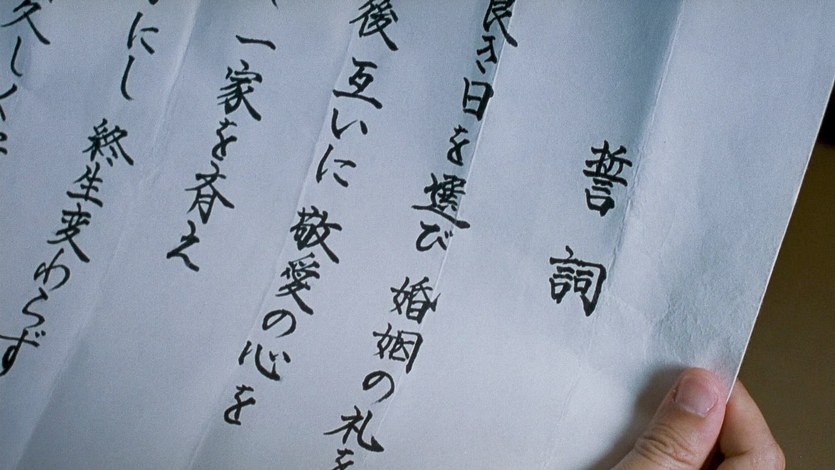 誓詞
良き日を選び 婚姻の礼を
後 互いに 敬愛の心を
一家を斉え
にし 終生変わらず
久しく